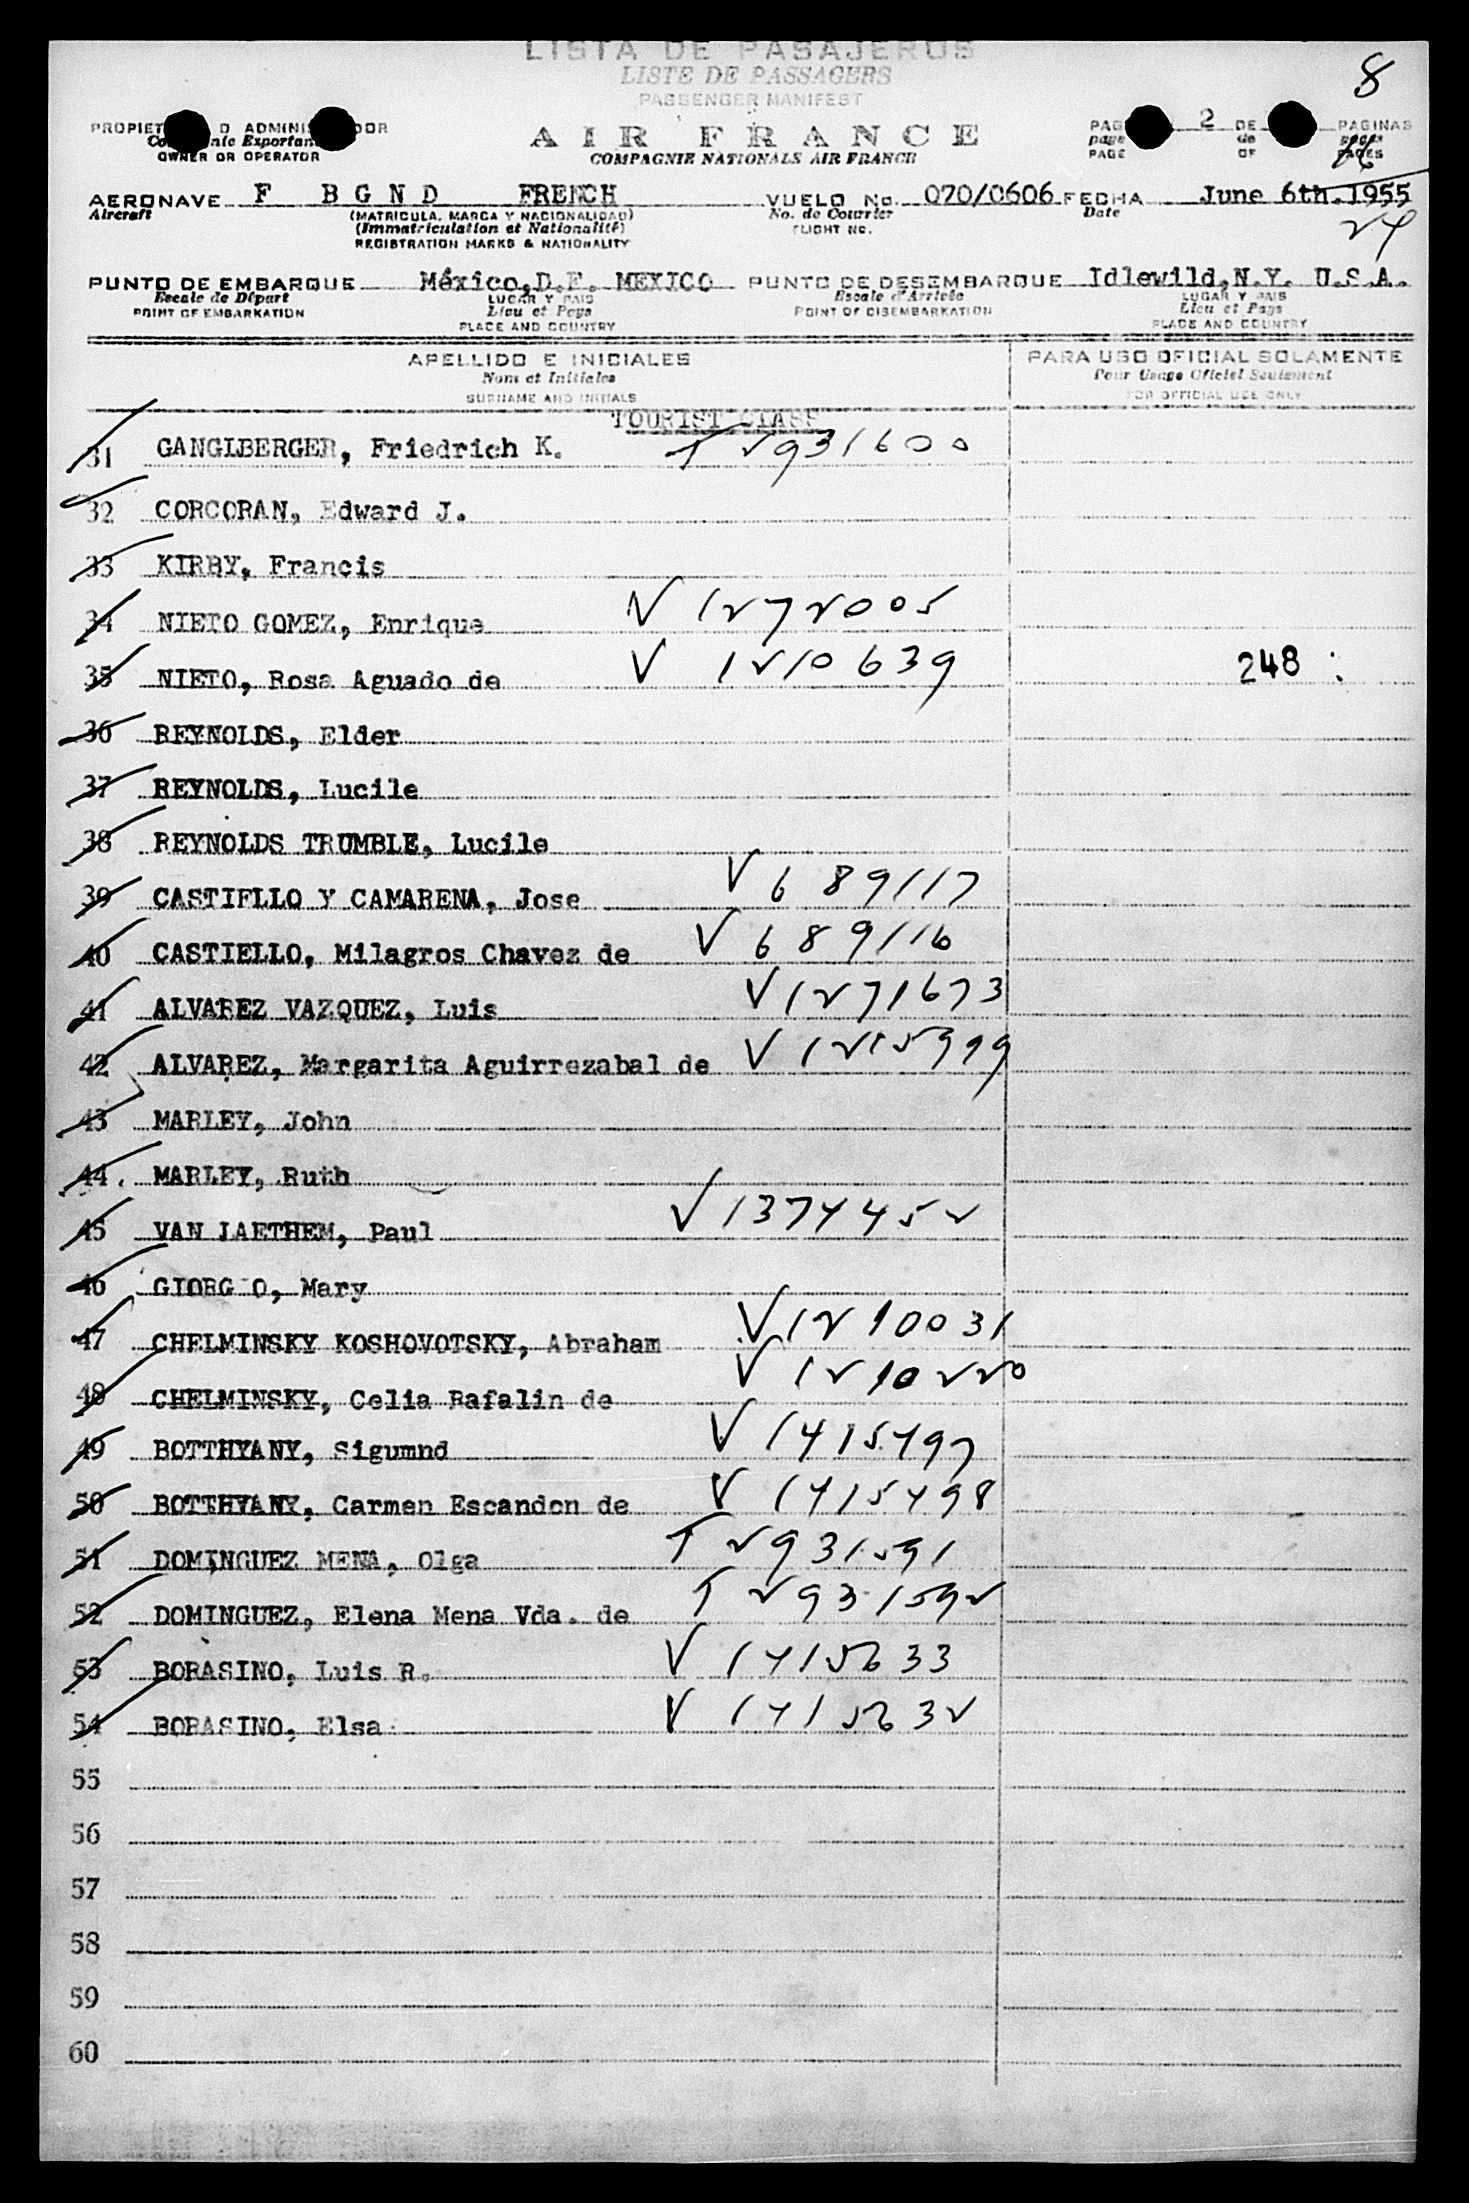 LISTA DE PASAJEROS
LISTE DE PASSAGERS
PASSENGER MANIFEST
8
AIR FRANCE
COMPAGNIE NATIONALE AIR FRANCE
OWNER OR OPERATOR
2 DE PAGINAS
page de pages
PAGE OF PAGES
AERONAVE F BGND FRENCH VUELO No. 070/0606 FECHA June 6th.1955
Aircraft (MATRICULA, MARCA Y NACIONALIDAD) No. de Courrier Date
(Immatriculation et Nationalité) FLIGHT NO.
REGISTRATION MARKS & NATIONALITY
PUNTO DE EMBARQUE México,D.F. MEXICO PUNTO DE DESEMBARQUE Idlewild,N.Y. U.S.A.
Escale de Départ LUGAR Y PAIS Escale d'Arrivée LUGAR Y PAIS
POINT OF EMBARKATION Lieu et Pays POINT OF DISEMBARKATION Lieu et Pays
PLACE AND COUNTRY PLACE AND COUNTRY
APELLIDO E INICIALES PARA USO OFICIAL SOLAMENTE
Nom et Initiales Pour Usage Officiel Seulement
SURNAME AND INITIALS FOR OFFICIAL USE ONLY
TOURIST CLASS
31 GANGLBERGER, Friedrich K. T 2931600
32 CORCORAN, Edward J.
33 KIRBY, Francis
34 NIETO GOMEZ, Enrique V 1272005
35 NIETO, Rosa Aguado de V 1210639 248 :
36 REYNOLDS, Elder
37 REYNOLDS, Lucile
38 REYNOLDS TRUMBLE, Lucile
39 CASTIELLO Y CAMARENA, Jose V 689117
40 CASTIELLO, Milagros Chavez de V 689116
41 ALVAREZ VAZQUEZ, Luis V 1271673
42 ALVAREZ, Margarita Aguirrezabal de V
43 MARLEY, John
44. MARLEY, Ruth
45 VAN LAETHEM, Paul V 1374452
46 GIORG O, Mary
47 CHELMINSKY KOSHOVOTSKY, Abraham V 1210031
48 CHELMINSKY, Celia Rafalin de V 1210220
49 BOTTHYANY, Sigumnd V 1415497
50 BOTTHYANY, Carmen Escandon de V 1415498
51 DOMINGUEZ MENA, Olga T 2931591
52 DOMINGUEZ, Elena Mena Vda. de T 2931592
53 BORASINO, Luis R. V 1415633
54 BORASINO, Elsa V 1415632
55
56
57
58
59
60